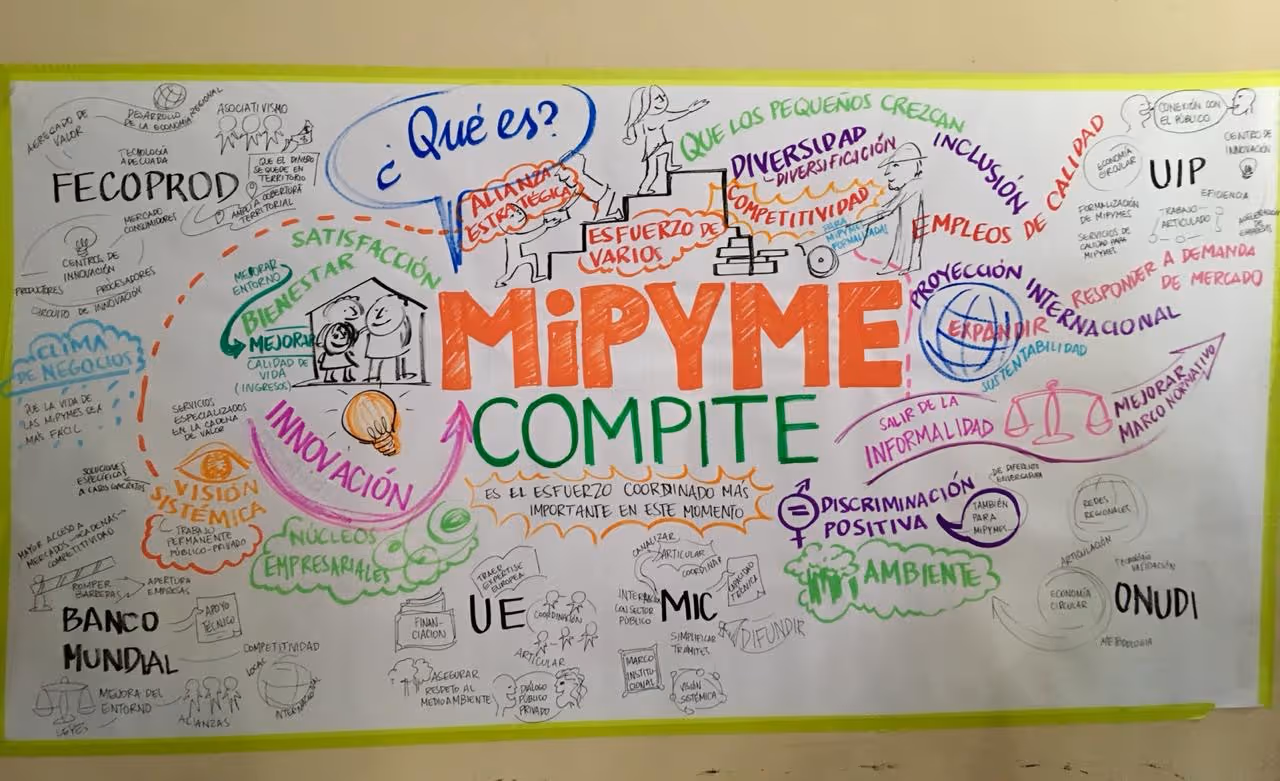 AGREGADO DE
VALOR
DESARROLLO
DE LA ECONOMÍA REGIONAL
ASOCIATIVISMO
TECNOLOGÍA
ADECUADA
QUE EL DINERO
SE QUEDE EN
TERRITORIO
FECOPROD
AMPLIA COBERTURA
TERRITORIAL
MERCADO
CONSUMIDORES
CENTRO DE
INNOVACIÓN
PRODUCTORES
PROCESADORES
CIRCUITO DE INNOVACIÓN
¿Qué es?
ALIANZA
ESTRATÉGICA
ESFUERZO DE
VARIOS
QUE LOS PEQUEÑOS CREZCAN
DIVERSIDAD
DIVERSIFICICIÓN
COMPETITIVIDAD
PARA
MIPYMES
FORMALIZADAS!
INCLUSIÓN
EMPLEOS DE CALIDAD
CONEXIÓN CON
EL PÚBLICO
CENTRO DE
INNOVACIÓN
ECONOMÍA
CIRCULAR
UIP
EFICIENCIA
FORMALIZACIÓN
DE MIPYMES
TRABAJO
ARTICULADO
SERVICIOS DE
CALIDAD PARA
MIPYMES
RESPONDER A DEMANDA
DE MERCADO
SATISFACCIÓN
BIENESTAR
MEJORAR
ENTORNO
MEJORAR
CALIDAD DE
VIDA
(INGRESOS)
MiPYME
COMPITE
ES EL ESFUERZO COORDINADO MAS
IMPORTANTE EN ESTE MOMENTO
PROYECCIÓN
INTERNACIONAL
EXPANDIR
SOSTENTABILIDAD
SALIR DE LA
INFORMALIDAD
MEJORAR
MARCO NORMATIVO
CLIMA
DE NEGOCIOS
QUE LA VIDA DE
LAS MIPYMES SEA
MAS FÁCIL
SERVICIOS
ESPECIALIZADOS
EN LA CADENA
DE VALOR
INNOVACIÓN
SOLUCIONES
ESPECÍFICAS
A CASOS CONCRETOS
VISIÓN
SISTÉMICA
TRABAJO
PERMANENTE
PÚBLICO-PRIVADO
NÚCLEOS
EMPRESARIALES
DISCRIMINACIÓN
POSITIVA
TAMBIÉN
PARA
MIPYMES
AMBIENTE
MAYOR ACCESO A
MERCADOS - CADENAS -
COMPETITIVIDAD
ROMPER
BARRERAS
APERTURA
EMPRESAS
BANCO
MUNDIAL
APOYO
TÉCNICO
COMPETITIVIDAD
LOCAL
INTERNACIONAL
MEJORA DEL
ENTORNO
LEYES
ALIANZAS
TRAER
EXPERTISE
EUROPEA
FINAN-
CIACION
UE
COORDINACIÓN
ARTICULAR
ASEGURAR
RESPETO AL
MEDIOAMBIENTE
DIÁLOGO
PÚBLICO
PRIVADO
CANALIZAR
ARTICULAR
COORDINAR
CON SECTOR
PÚBLICO
MIC
CAPACIDAD
TÉCNICA
SIMPLIFICAR
TRÁMITES
DIFUNDIR
MARCO
INSTITU-
CIONAL
VISIÓN
SISTÉMICA
REDES
REGIONALES
ARTICULACIÓN
ECONOMÍA
CIRCULAR
ONUDI
METODOLOGIA